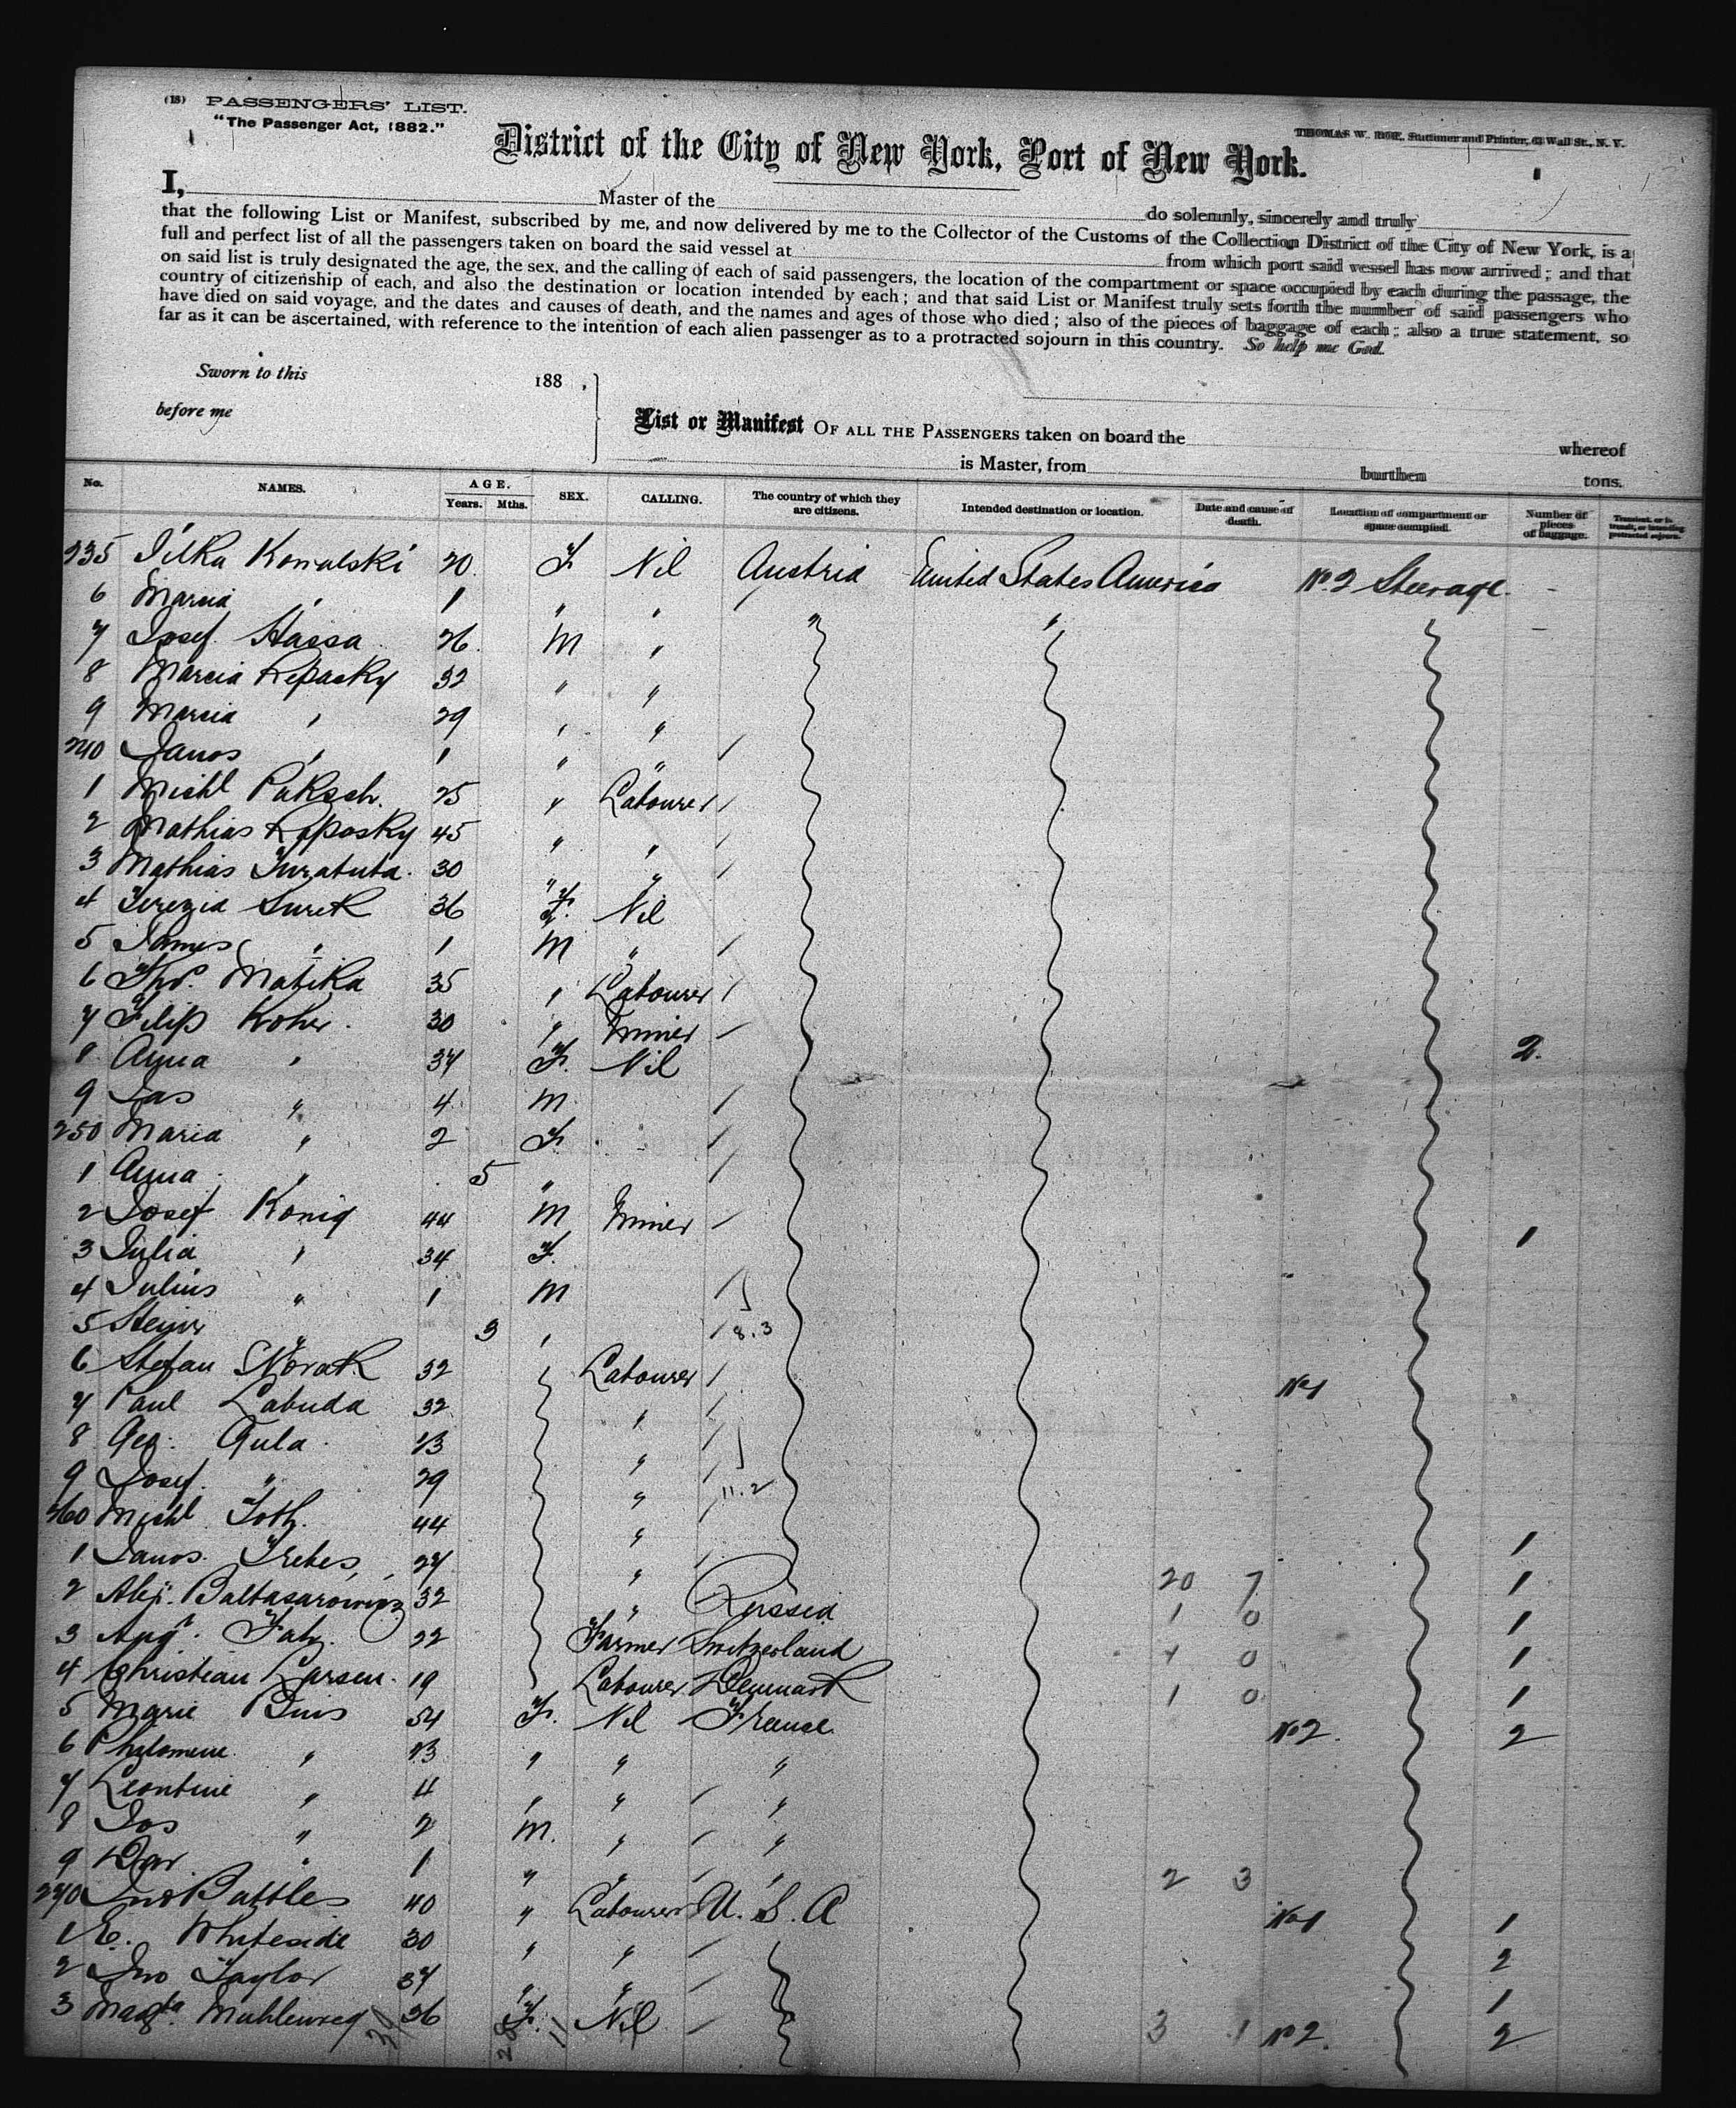 (18) PASSENGERS' LIST.
"The Passenger Act, 1882."
THOMAS W. ROE, Stationer and Printer, 63 Wall St., N. Y.
District of the City of New York, Port of New York.
I, Master of the do solemnly, sincerely and truly
that the following List or Manifest, subscribed by me, and now delivered by me to the Collector of the Customs of the Collection District of the City of New York, is a
full and perfect list of all the passengers taken on board the said vessel at from which port said vessel has now arrived; and that
on said list is truly designated the age, the sex, and the calling of each of said passengers, the location of the compartment or space occupied by each during the passage, the
country of citizenship of each, and also the destination or location intended by each; and that said List or Manifest truly sets forth the number of said passengers who
have died on said voyage, and the dates and causes of death, and the names and ages of those who died; also of the pieces of baggage of each; also a true statement, so
far as it can be ascertained, with reference to the intention of each alien passenger as to a protracted sojourn in this country. So help me God.
Sworn to this 188 ,
before me
List or Manifest OF ALL THE PASSENGERS taken on board the whereof
is Master, from burthen tons.
No. NAMES. AGE. Years. Mths. SEX. CALLING. The country of which they are citizens. Intended destination or location. Date and cause of death. Location of compartment or space occupied. Number of pieces of baggage. Transient, or in transit, or intending protracted sojourn.
235 Ilka Kowalski 20 F Nil Austria United States America No. 2 Steerage -
6 Maria " 1 " " -
7 Josef Hassa 26 M "
8 Maria Repasky 32 " "
9 Maria " 29 " "
240 Janos " 1 " "
1 Michl Paksch. 25 " Labourer
2 Mathias Repasky 45 " "
3 Mathias 30 " "
4 Terezia Surek 36 F. Nil
5 " 1 M "
6 Matika 35 " Labourer
7 Filip Koher 30 " Miner 2.
8 Anna " 37 F. Nil
9 Jas " 4 M.
250 Maria " 2 F
1 Anna " 5 "
2 Josef Konig 44 M Miner 1
3 Julia " 34 F.
4 Julius " 1 M
5 " 3 " 8.3
6 Stefan Novak 32 Labourer No 1
7 Paul Labuda 32 "
8 Geo. Gula 13 "
9 Josef " 29 " 11.2
260 Michl Toth. 44 " 1
1 Janos 27 " 20 7 1
2 Baltasarowicz 32 " Russia 1 0 1
3 Augt. 22 Farmer Switzerland 1 0 1
4 Christian Larsen 19 Labourer Denmark 1 0 1
5 Marie 54 F. Nil France No 2. 2
6 Philomene " 13 " " "
7 Leontine " 4 " " "
8 Jos " 2 M. " "
9 " 1 " " " 2 3
270 Jno Battles 40 " Labourer U.S.A No 1 1
1 E. Whiteside 30 " " 2
2 Jno Taylor 37 " " 1
3 Magda. Muhleweg 36 F. Nil 3 1 No 2. 2
28 11